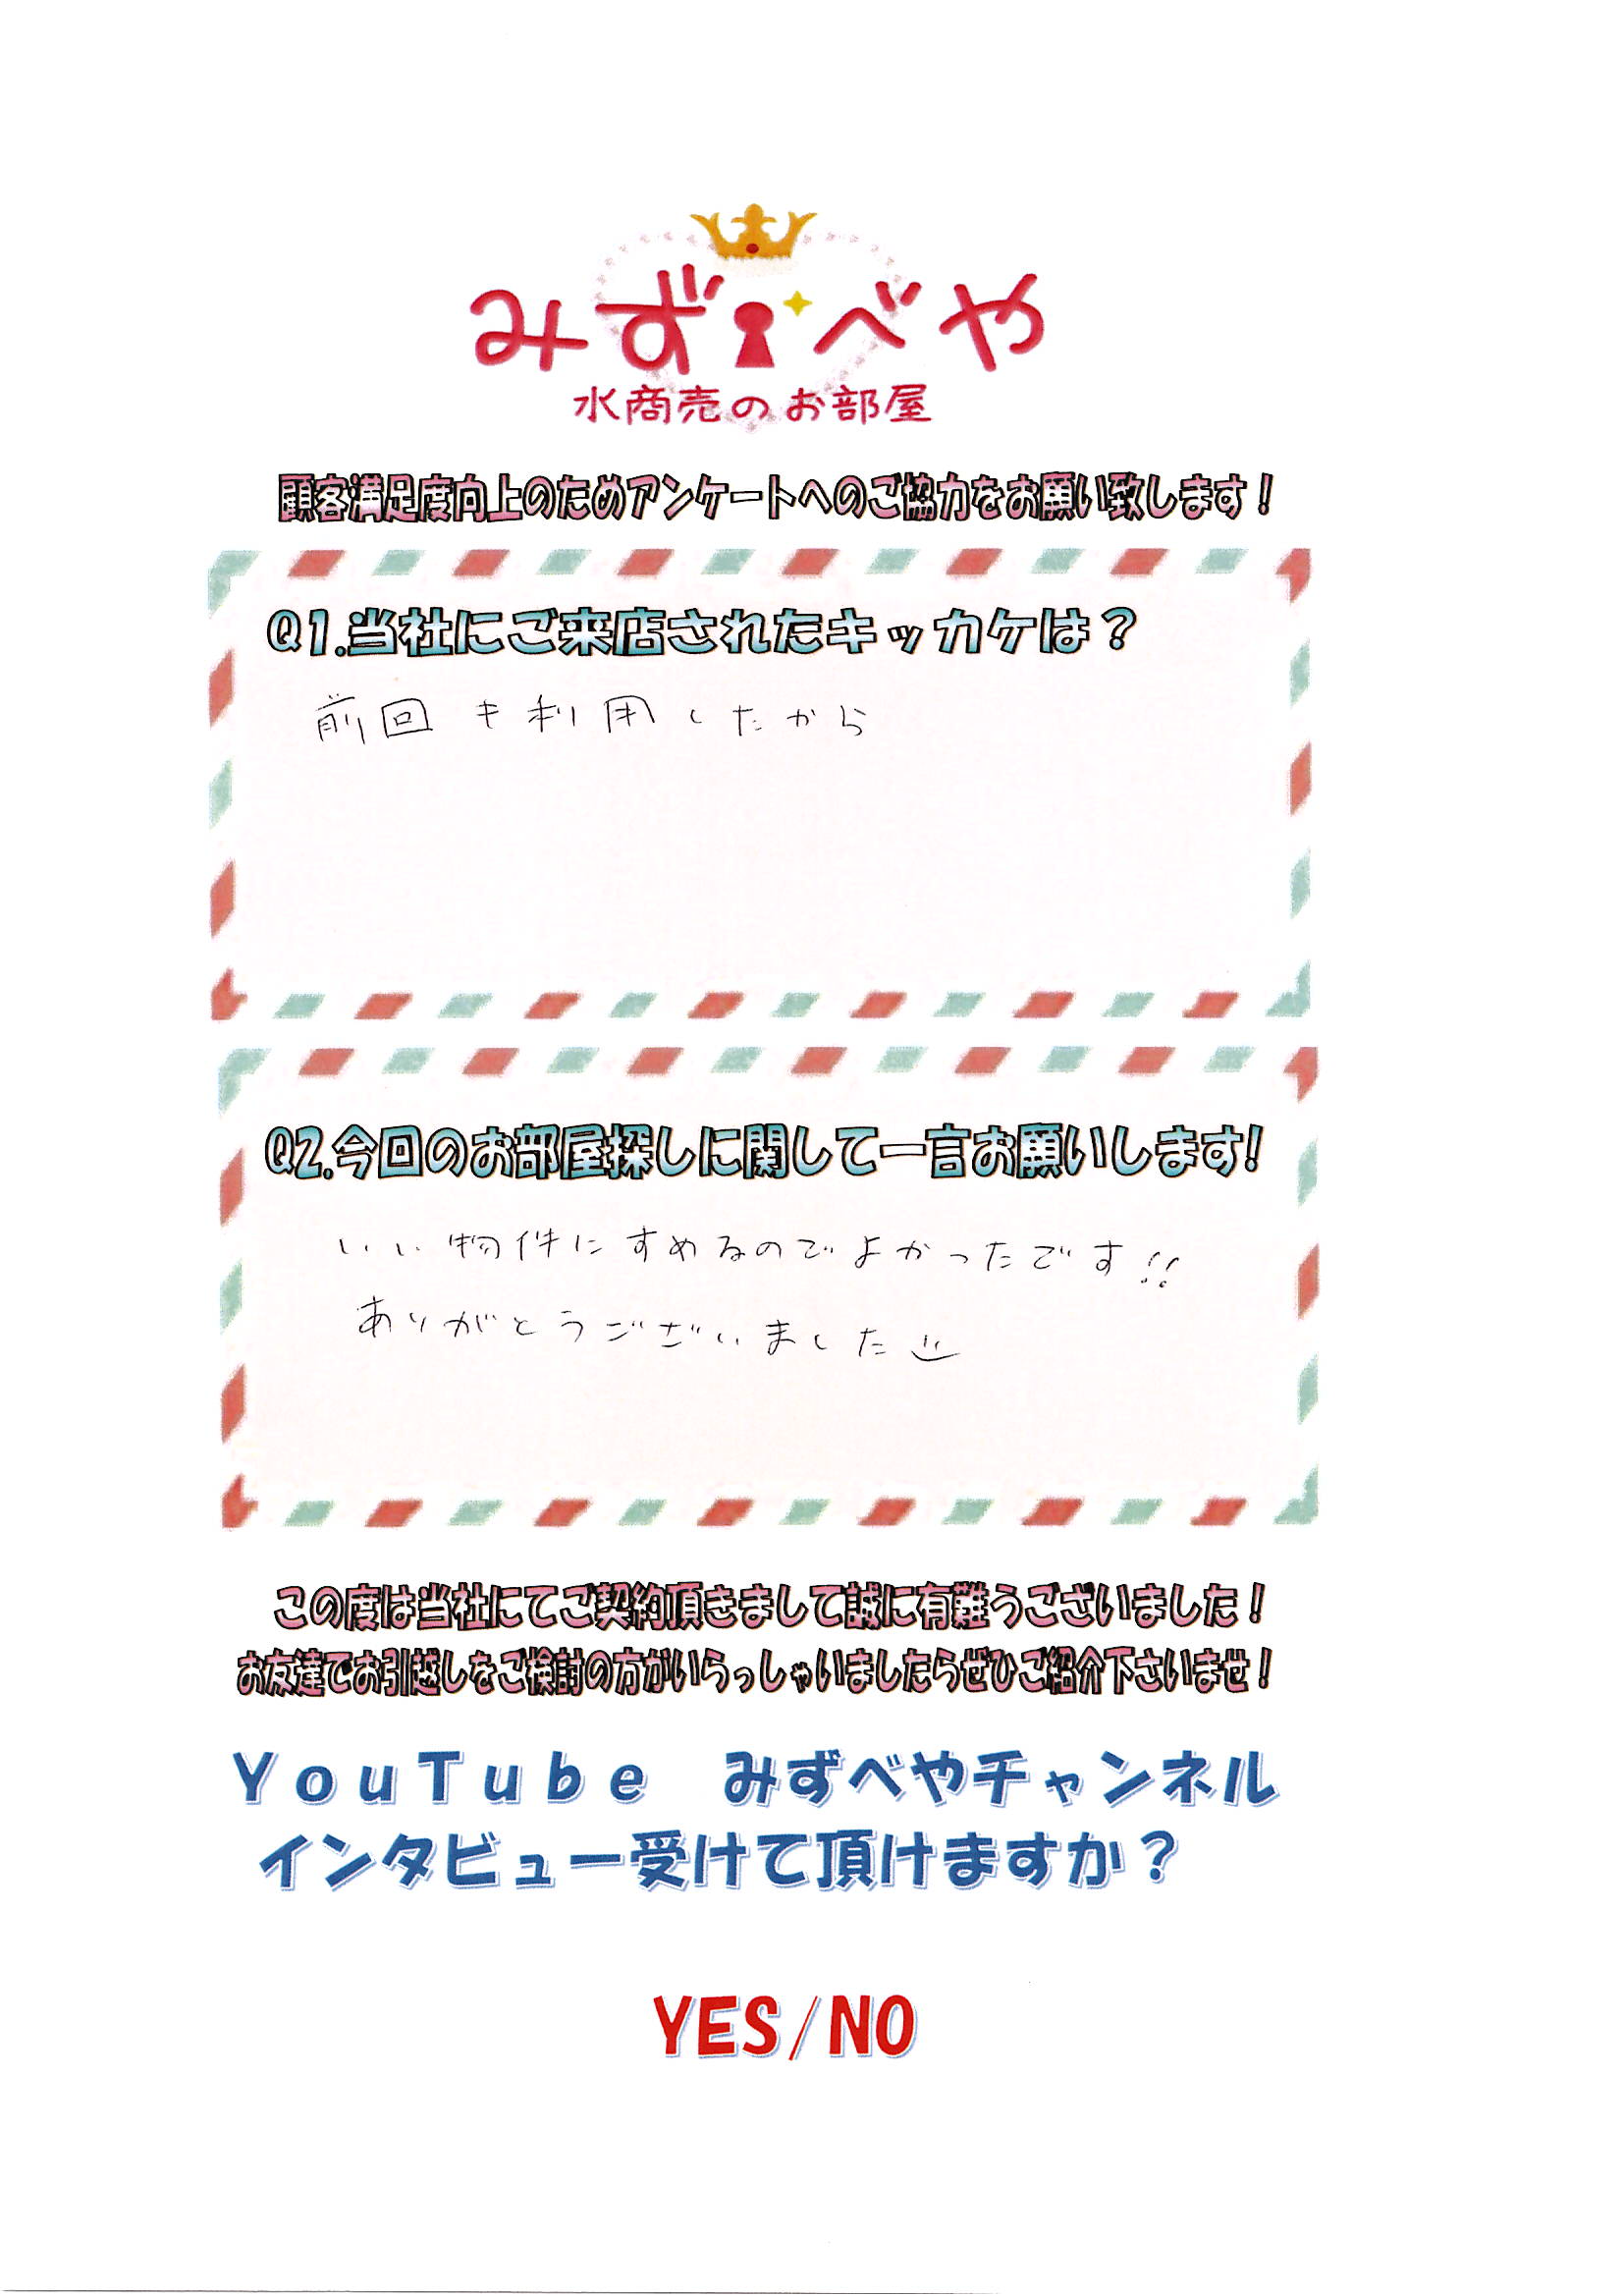 みずべや
水商売のお部屋
顧客満足度向上のためアンケートへのご協力をお願い致します！
Q1.当社にご来店されたキッカケは？
前回も利用したから
Q2.今回のお部屋探しに関して一言お願いします!
いい物件にすめるのでよかったです!!
ありがとうございました
この度は当社にてご契約頂きまして誠に有難うございました！
お友達でお引越しをご検討の方がいらっしゃいましたらぜひご紹介下さいませ！
YouTube　みずべやチャンネル
インタビュー受けて頂けますか？
YES/NO